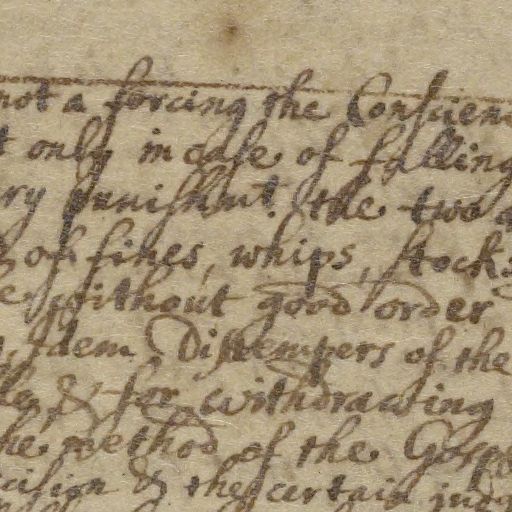 not a forcing the Conscien
t only in case of falling
ry punishmt. the two
of fines, whips, stocks
without good order
, idem, Distempers of the
& for withdrawing
he method of the Gosp
cision & the certain judg